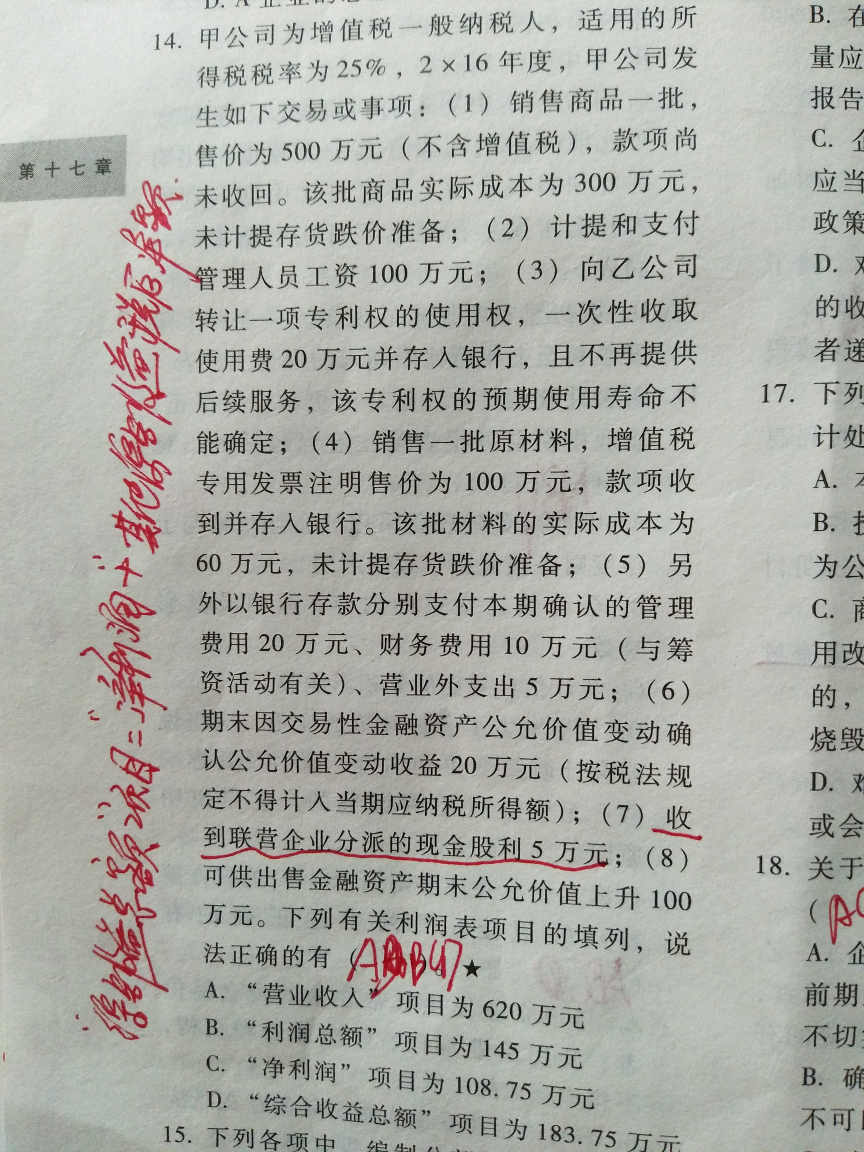 D. A 企业的总
14. 甲公司为增值税一般纳税人，适用的所
得税税率为25%，2×16 年度，甲公司发
生如下交易或事项：（1）销售商品一批，
售价为 500 万元（不含增值税），款项尚
未收回。该批商品实际成本为 300 万元，
未计提存货跌价准备；（2）计提和支付
管理人员工资 100 万元；（3）向乙公司
转让一项专利权的使用权，一次性收取
使用费 20 万元并存入银行，且不再提供
后续服务，该专利权的预期使用寿命不
能确定；（4）销售一批原材料，增值税
专用发票注明售价为 100 万元，款项收
到并存入银行。该批材料的实际成本为
60 万元，未计提存货跌价准备；（5）另
外以银行存款分别支付本期确认的管理
费用 20 万元、财务费用 10 万元（与筹
资活动有关）、营业外支出 5 万元；（6）
期末因交易性金融资产公允价值变动确
认公允价值变动收益 20 万元（按税法规
定不得计入当期应纳税所得额）；（7）收
到联营企业分派的现金股利 5 万元；（8）
可供出售金融资产期末公允价值上升 100
万元。下列有关利润表项目的填列，说
法正确的有（ ）。★
A. “营业收入”项目为 620 万元
B. “利润总额”项目为 145 万元
C. “净利润”项目为 108.75 万元
D. “综合收益总额”项目为 183.75 万元
15. 下列各项中
第十七章
“综合收益总额”项目=“净利润”+其他综合收益税后净额
B. 在
量应
报告
C. 企
应当
政策
D. 对
的收
者递
17. 下列
计处
A. 本
B. 投
为公
C. 商
用改
的，
烧毁
D. 难
或会
18. 关于
（
A. 企
前期
不切
B. 确
不可